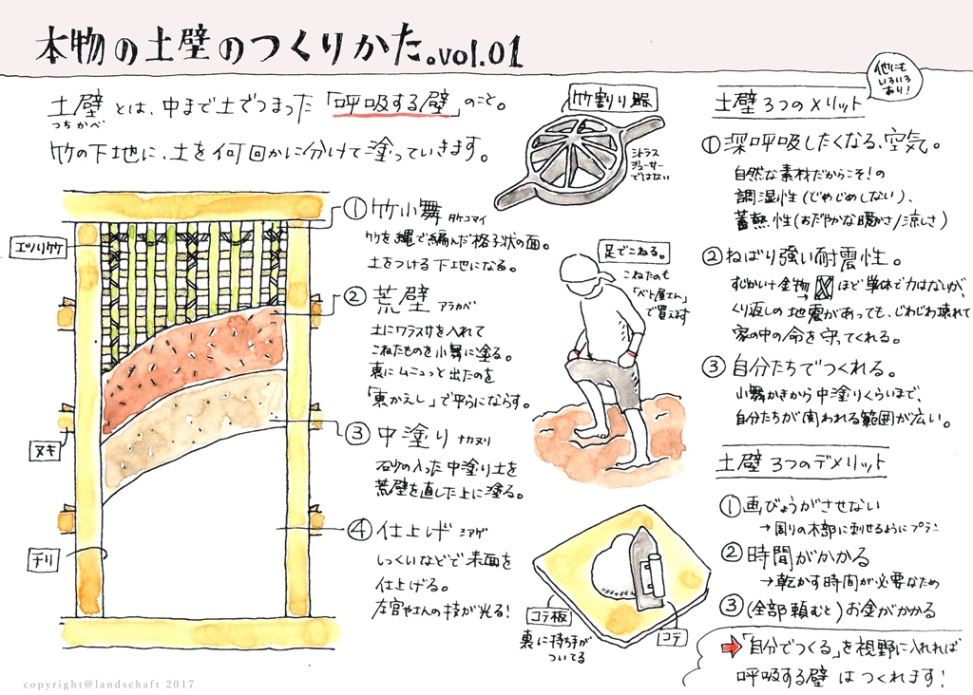 本物の土壁のつくりかた。vol.01
土壁とは、中まで土でつまった「呼吸する壁」のこと。
つちかべ
竹の下地に、土を何回かに分けて塗っていきます。
エツリ竹
ヌキ
チリ
①竹小舞 タケコマイ
竹を縄で編んだ格子状の面。
土をつける下地になる。
②荒壁 アラカベ
土にワラスサを入れて
こねたものを小舞に塗る。
裏にムニュっと出たのを
「裏かえし」で平らにならす。
③中塗り ナカヌリ
石砂の入った中塗り土を
荒壁を直した上に塗る。
④仕上げ シアゲ
しっくいなどで表面を
仕上げる。
左官やさんの技が光る!
竹割り器
シトラス
ジューサー
ではない
足でこねる。
こねたのも
「ベト屋さん」
で買えます
コテ板
裏に持ち手が
ついてる
コテ
他にも
いろいろ
あり!
土壁3つのメリット
①深呼吸したくなる、空気。
自然な素材だからこそ!の
調湿性(じめじめしない)、
蓄熱性(おだやかな暖かさ/涼しさ)
②ねばり強い耐震性。
すじかいけ金物→ほど単体で力はないが、
くり返しの地震があっても、じわじわ壊れて
家の中の命を守ってくれる。
③自分たちでつくれる。
小舞かきから中塗りくらいまで、
自分たちが関われる範囲が広い。
土壁3つのデメリット
①画びょうがさせない
→周りの木部に刺せるようにプラン
②時間がかかる
→乾かす時間が必要なため
③(全部頼むと)お金がかかる
➡「自分でつくる」を視野に入れれば
呼吸する壁はつくれます!
copyright@landschaft 2017